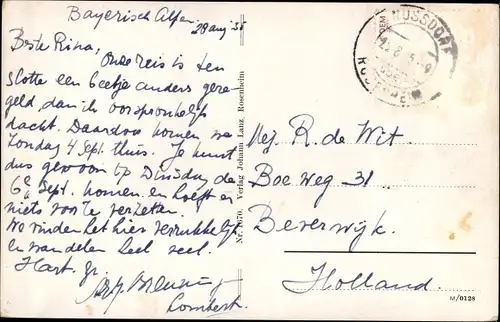 Bayerisch Alpen
28 aug '55
Beste Rina,
Onze reis is ten
slotte een beetje anders gere-
geld, dan ik oorspronkelijk
dacht. Daardoor komen we
Zondag 4 Sept. thuis. Je kunt
dus gewoon op Dinsdag de
6e Sept. komen en hoeft er
niets voor te verzetten.
We vinden het hier verrukkelijk
en wandelen heel veel.
Hart. gr.
Lombert.
Nr. 1670. Verlag Johann Lanz, Rosenheim
NUSSDORF
ROSENHEIM
Mej. R. de Wit
Boeweg 31
Beverwijk.
Holland.
M/0128